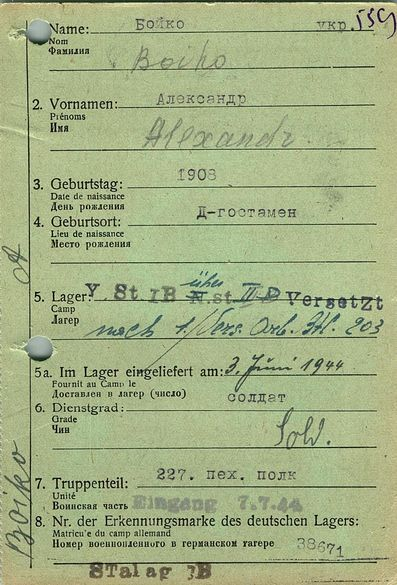 Name: Бойко укр.
Nom
Фамилия
Boiko
2. Vornamen: Александр
Prénoms
Имя
Alexandr
3. Geburtstag: 1908
Date de naissance
День рождения
4. Geburtsort: Д-гостамен
Lieu de naissance
Место рождения
A
5. Lager: St IB über st. II D Versetzt
Camp
Лагерь
nach 1./Vers. Arb. Btl. 203
5a. Im Lager eingeliefert am: 3. Juni 1944
Fournit au Camp le
Доставлен в лагерь (число)
6. Dienstgrad: солдат
Grade
Чин
Sold.
7. Truppenteil: 227. пех. полк
Unité
Воинская часть Eingang 7.7.44
8. Nr. der Erkennungsmarke des deutschen Lagers:
Matricule du camp allemand
Номер военнопленного в германском лагере 38671
Boiko
STalag 3B